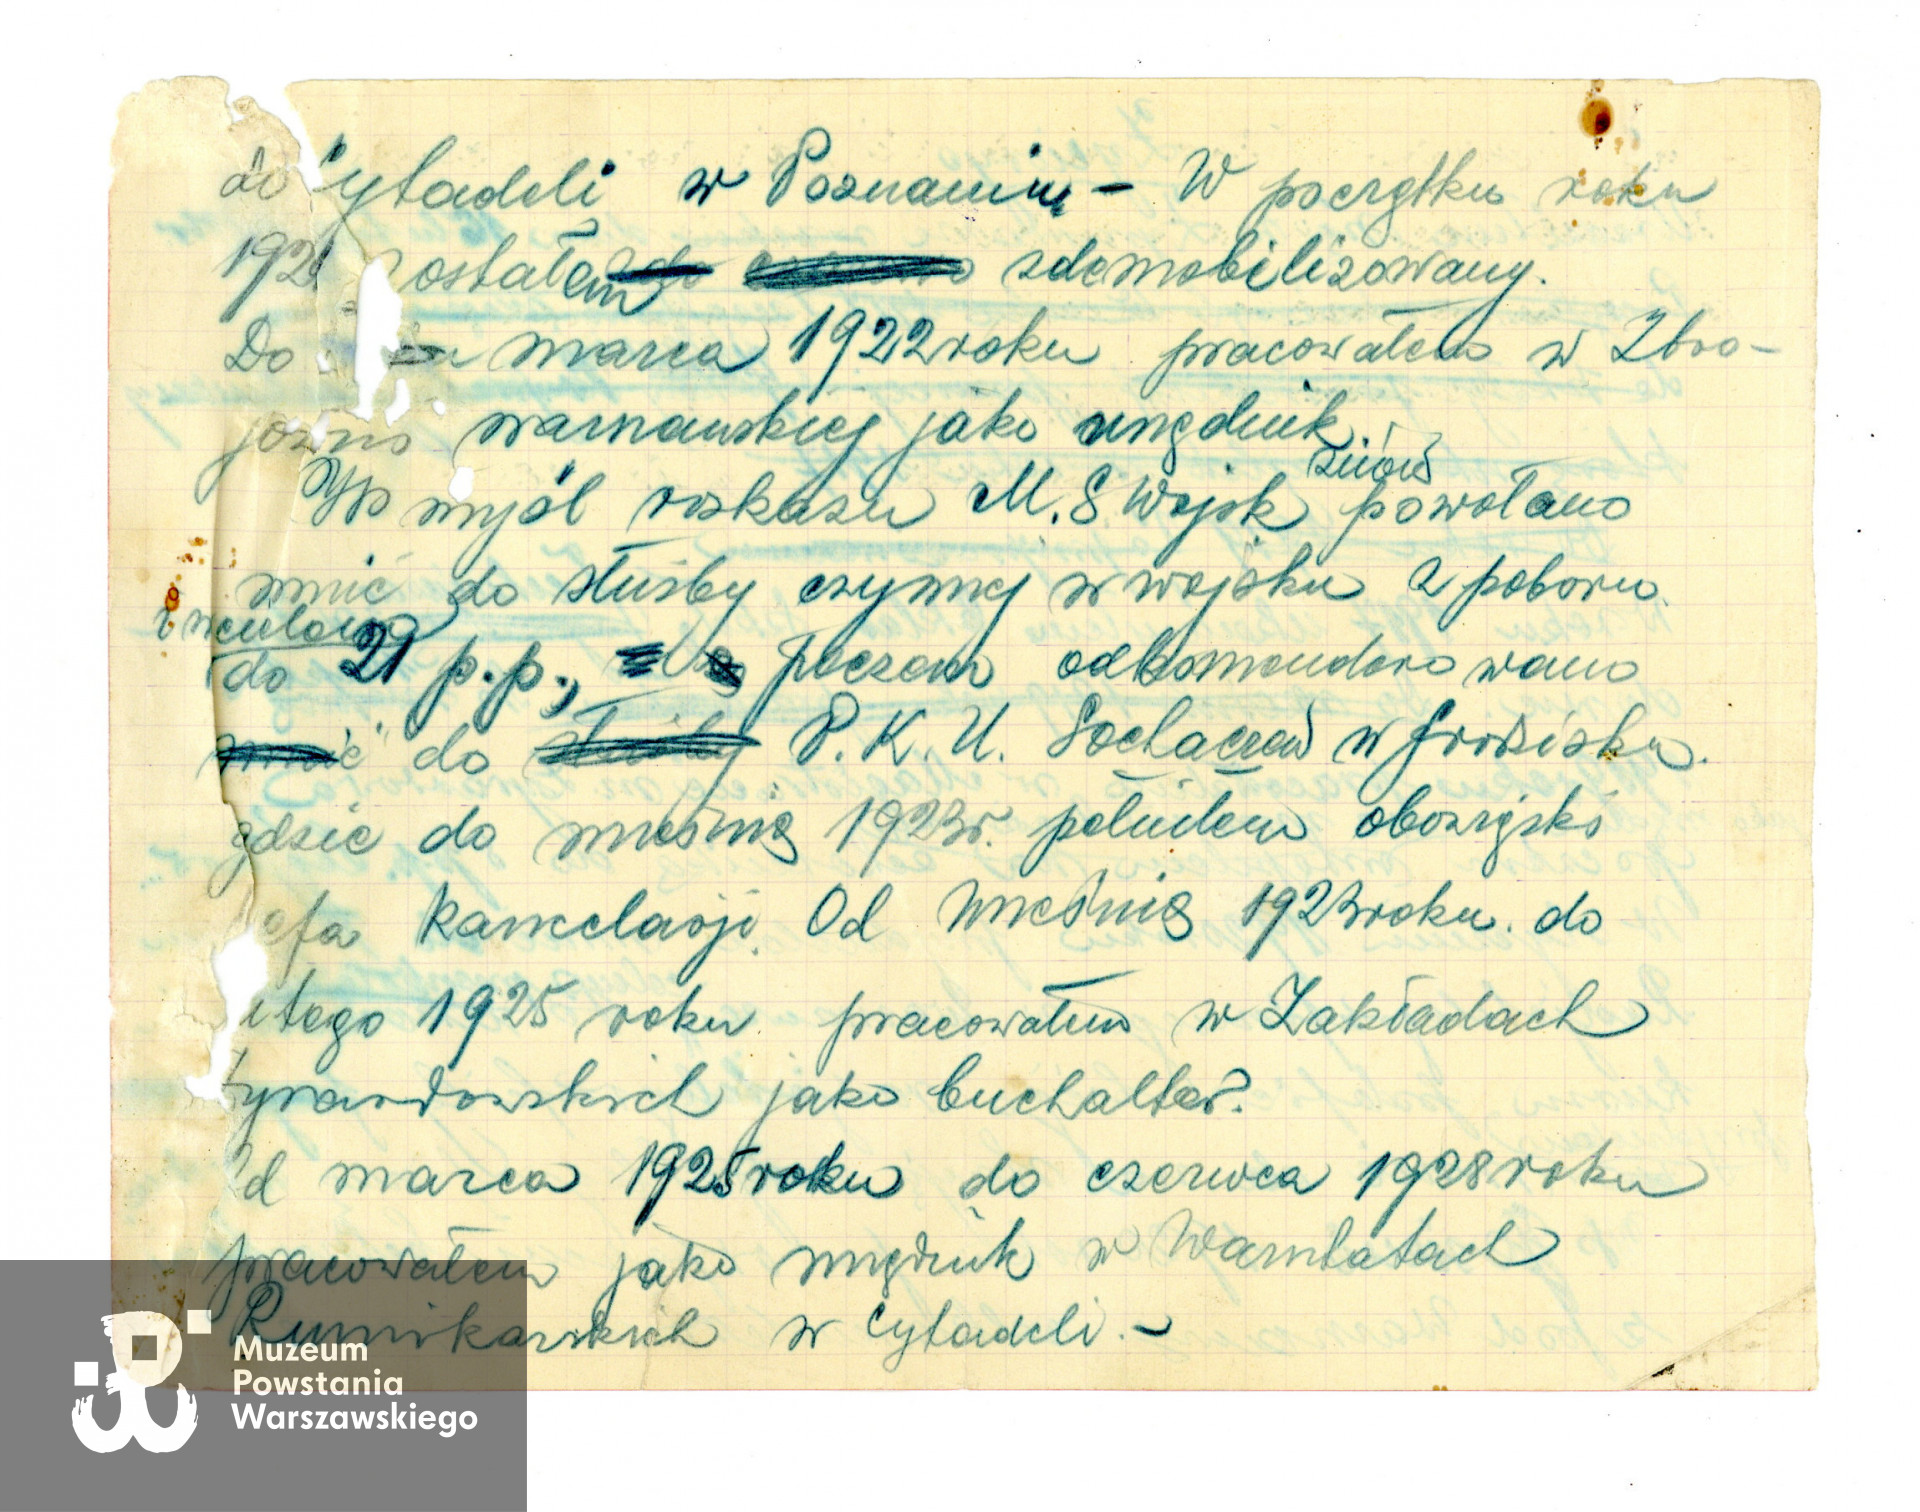 do Cytadeli w Poznaniu – W początku roku
192 zostałem zdemobilizowany.
Do marca 1922 roku pracowałem w Zbro-
jowni warszawskiej jako urzędnik.
W myśl rozkazu M. S Wojsk znów powołano
mnie do służby czynnej w wojsku z poboru
i wcielono
do 21 p.p., poczem odkomenderowano
do P. K. U. Sochaczew w Grodzisku.
gdzie do września 1923 r. pełniłem obowiązki
efa kancelarji. Od września 1923 roku. do
utego 1925 roku pracowałem w Zakładach
yrardowskich jako buchalter.
d marca 1925 roku do czerwca 1928 roku
pracowałem jako urzędnik w Warsztatach
Rusznikarskich w Cytadeli. –
Muzeum
Powstania
Warszawskiego